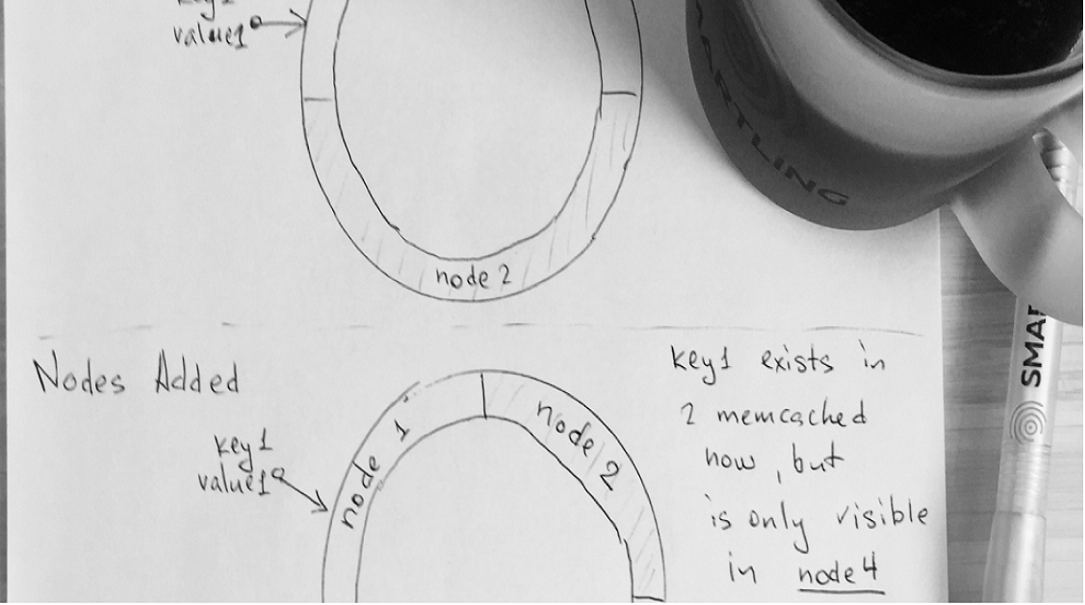 value1
node 2
Nodes Added
key1
value1
node 1
node 2
key1 exists in
2 memcached
now, but
is only visible
in node 4
ARTLING
SMA